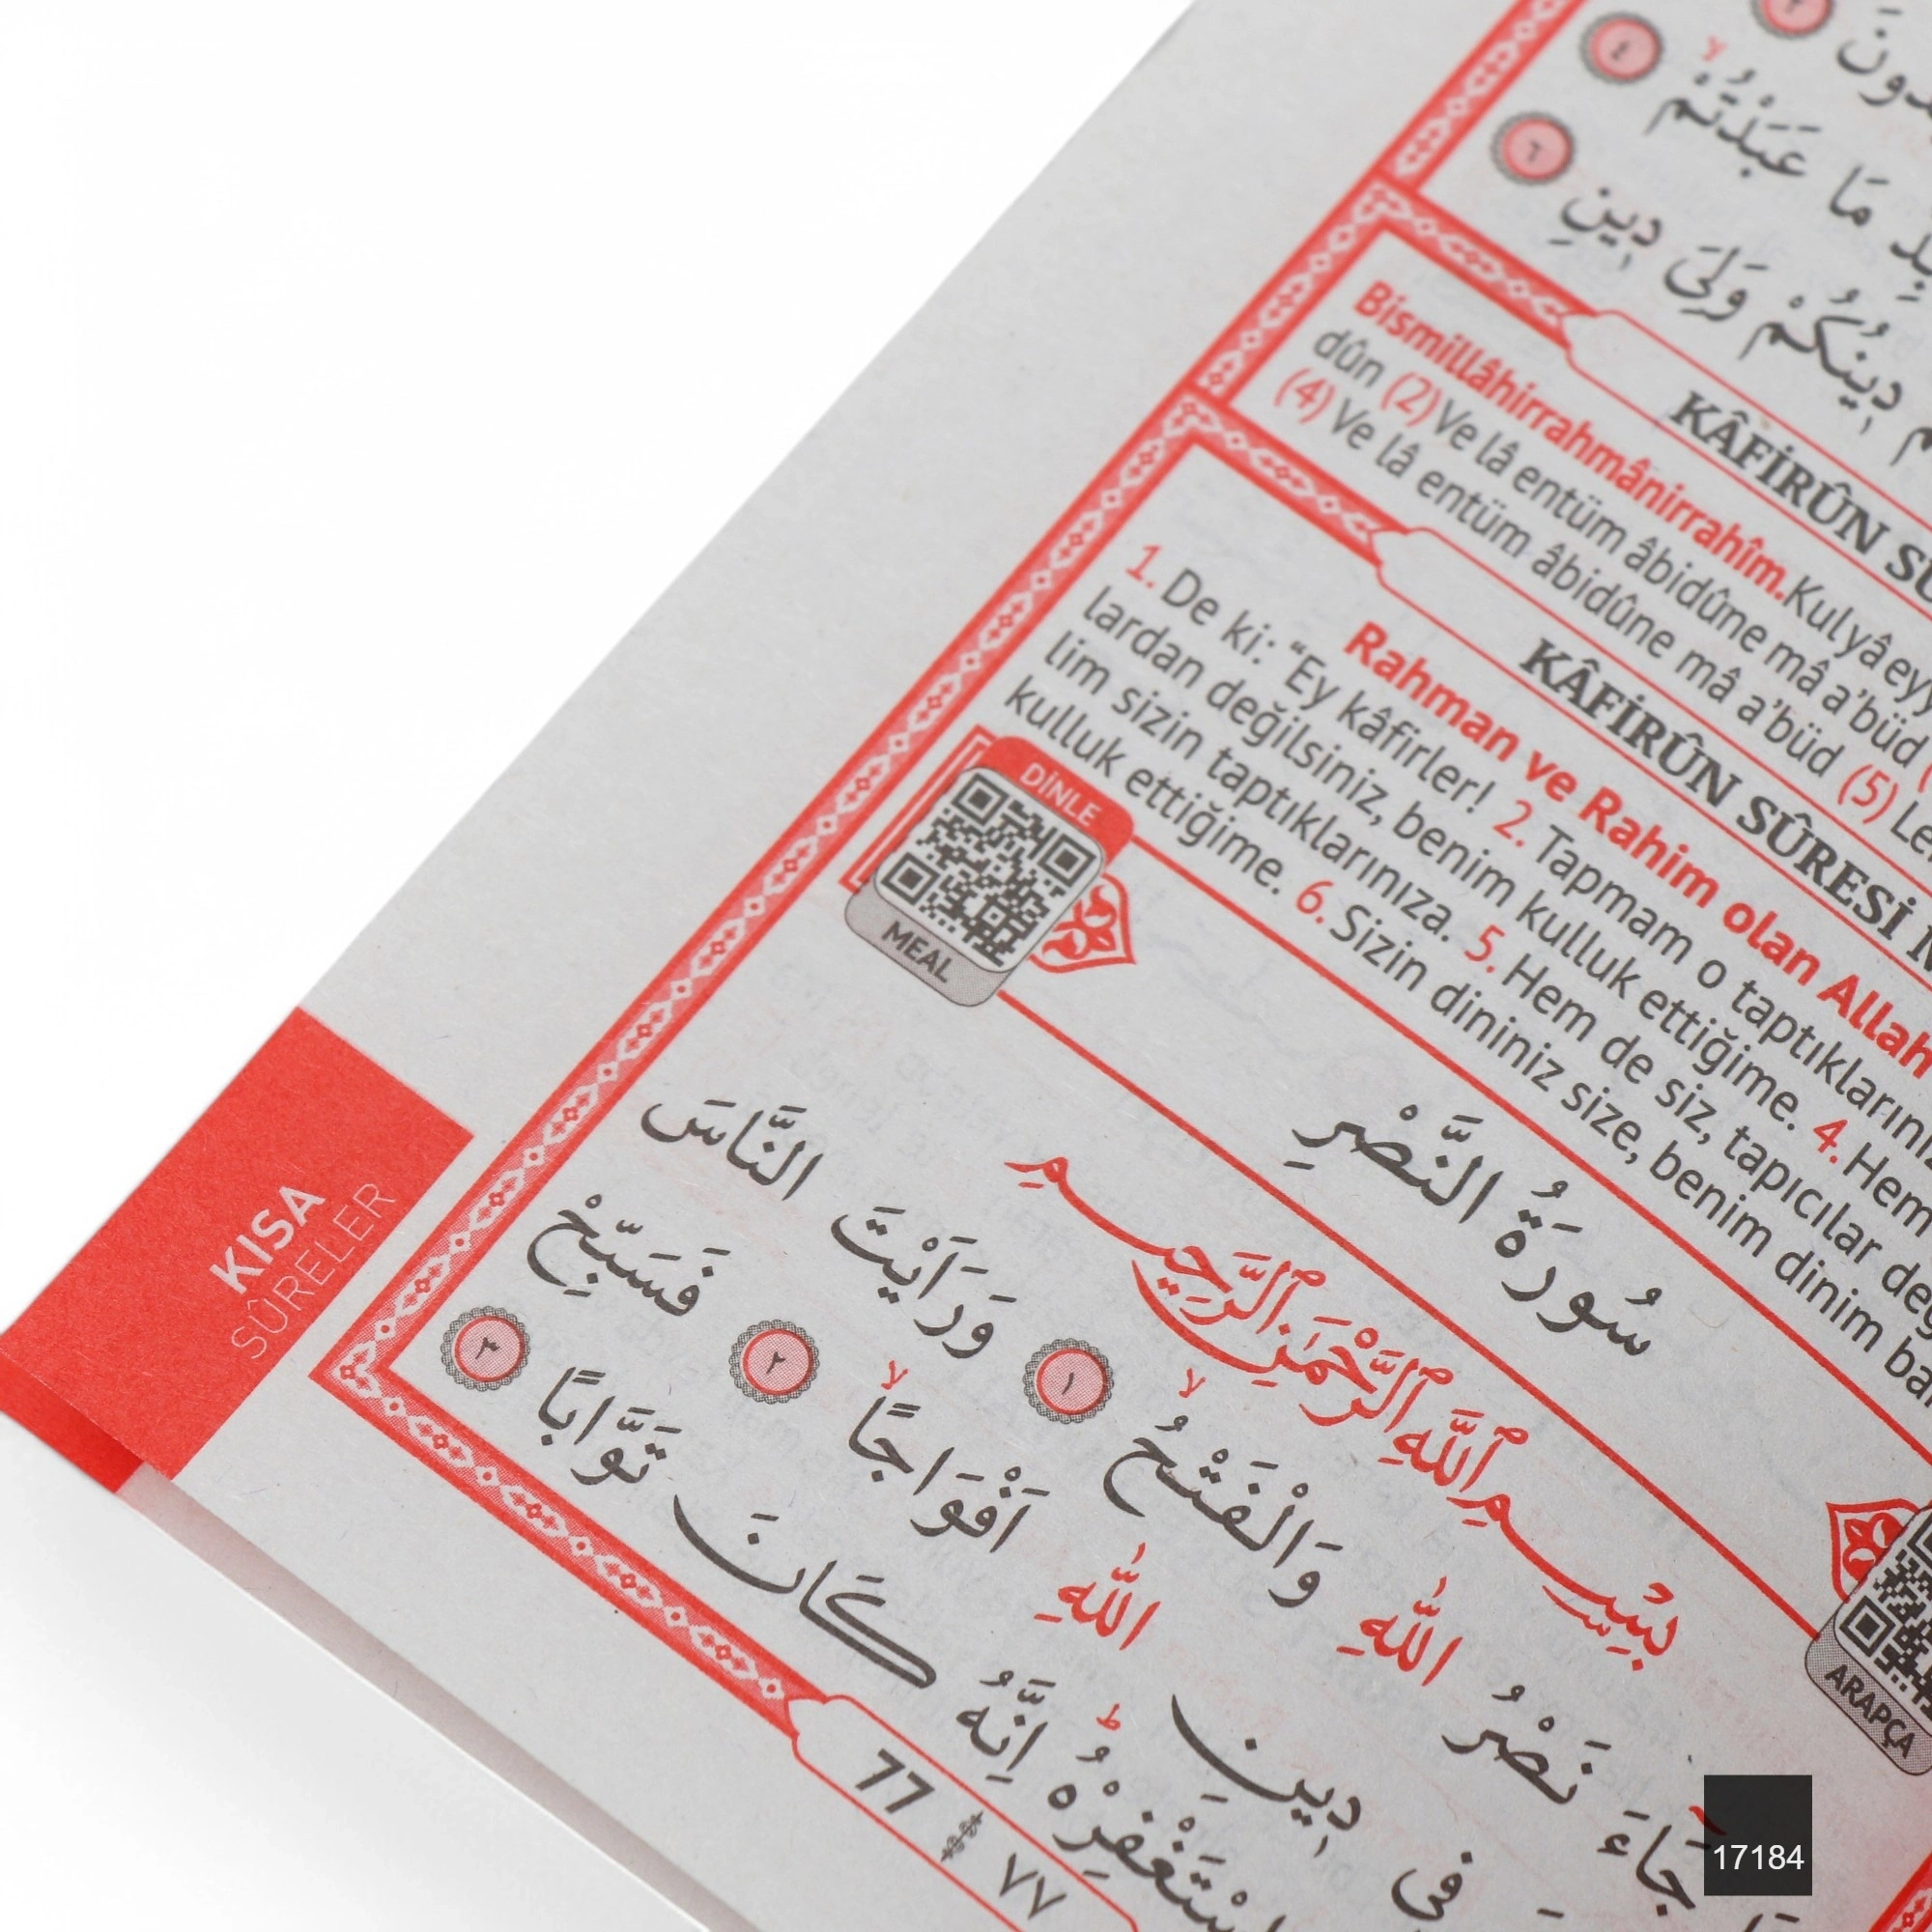 ٤
عَبَدْتُمْ مَا
دِينُكُمْ وَلِىَ دِينِ ٦
KÂFİRÛN
Bismillâhirrahmânirrahîm. Kul yâ
dûn (2) Ve lâ entüm âbidûne mâ a'büd
(4) Ve lâ entüm âbidûne mâ a'büd (5)
KÂFİRÛN SÛRESİ
Rahman ve Rahim olan Allah
1. De ki: “Ey kâfirler! 2. Tapmam o
lardan değilsiniz, benim kulluk ettiğime. 4. Hem
lim sizin taptıklarınıza. 5. Hem de siz, tapıcılar
kulluk ettiğime. 6. Sizin dininiz size, benim dinim
DİNLE
MEAL
سُورَةُ النَّصْرِ
ARAPÇA
بِسْمِ اللّٰهِ الرَّحْمٰنِ الرَّحِيمِ
جَاءَ نَصْرُ اللّٰهِ وَالْفَتْحُۙ ١ وَرَاَيْتَ النَّاسَ
فِى دِينِ اللّٰهِ اَفْوَاجًاۙ ٢ فَسَبِّحْ
اِنَّهُ كَانَ تَوَّابًا ٣
KISA
SÛRELER
77 ٧٧
17184